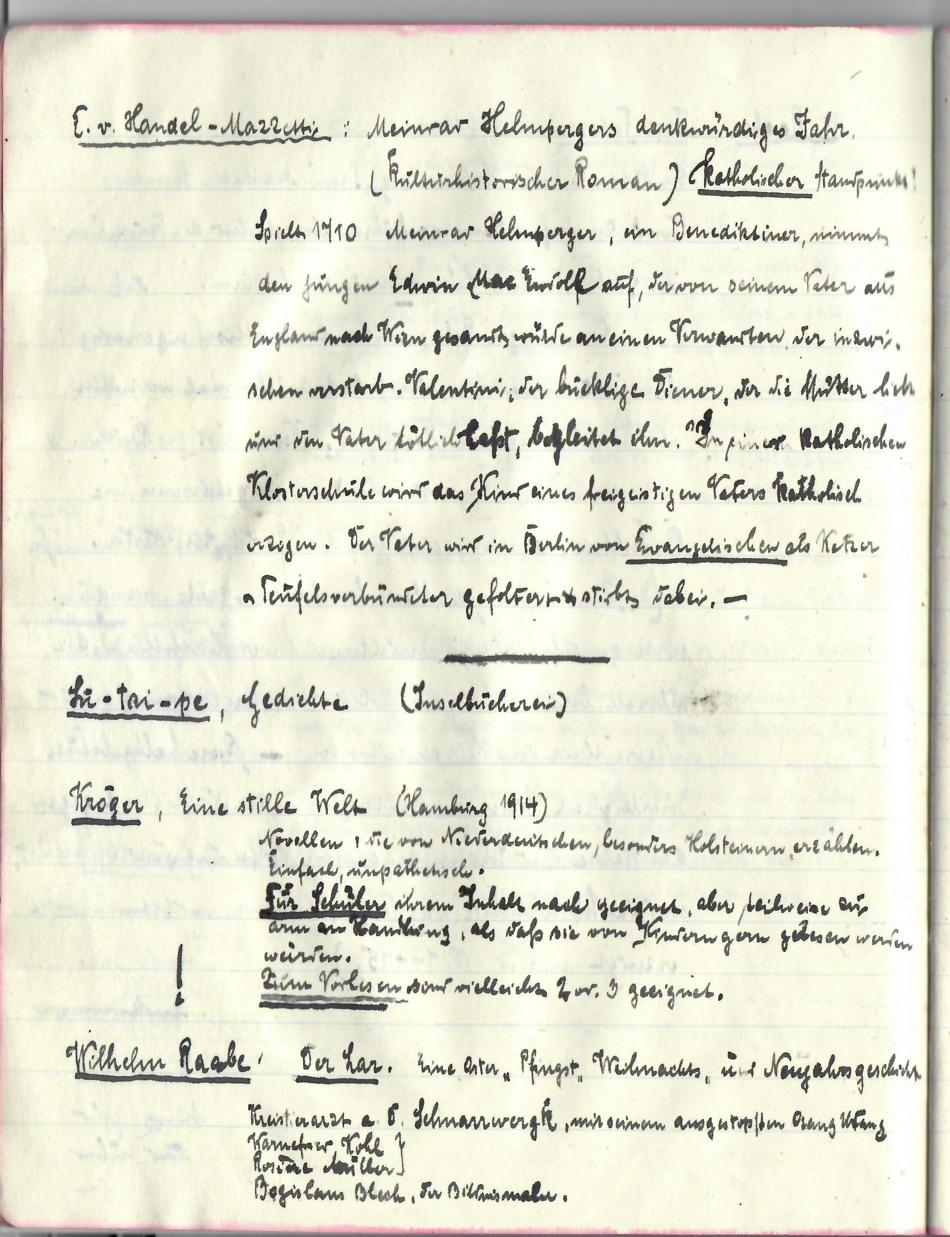 E. v. Handel-Mazzetti: Meinrad Helmpergers denkwürdiges Jahr.
(Kulturhistorischer Roman) Katholischer Standpunkt!
Spielt 1710 Meinrad Helmperger, ein Benediktiner, nimmt
den jungen Edwin Mac Endoll auf, der von seinem Vater aus
England nach Wien gesandt wurde an einen Verwandten, der inzwi-
schen verstarb. Valentini, der bucklige Diener, der die Mutter liebt
und den Vater tötlich haßt, begleitet ihn. In einer katholischen
Klosterschule wird das Kind eines freigeistigen Vaters katholisch
erzogen. Der Vater wird in Berlin von Evangelischen als Ketzer
u. Teufelsverbündeter gefoltert & stirbt dabei. —
Li-tai-pe, Gedichte (Inselbücherei)
Kröger, Eine stille Welt (Hamburg 1914)
Novellen, die von Niederdeutschen, besonders Holsteinern, erzählen.
Einfach, unpathetisch.
Für Schüler ihrem Inhalt nach geeignet, aber teilweise zu
arm an Handlung, als daß sie von Kindern gern gelesen werden
würden.
! Zum Vorlesen sind vielleicht 2 od. 3 geeignet.
Wilhelm Raabe: Der Lar. Eine Oster„ Pfingst„ Weihnachts„ und Neujahrsgeschichte
Kreistierarzt a. D. Schnarrwergk, mit seinem ausgestopften Orang Utang
Warnefried Kohl }
Rosine Müller }
Bogislaus Blech, der Bildnismaler.